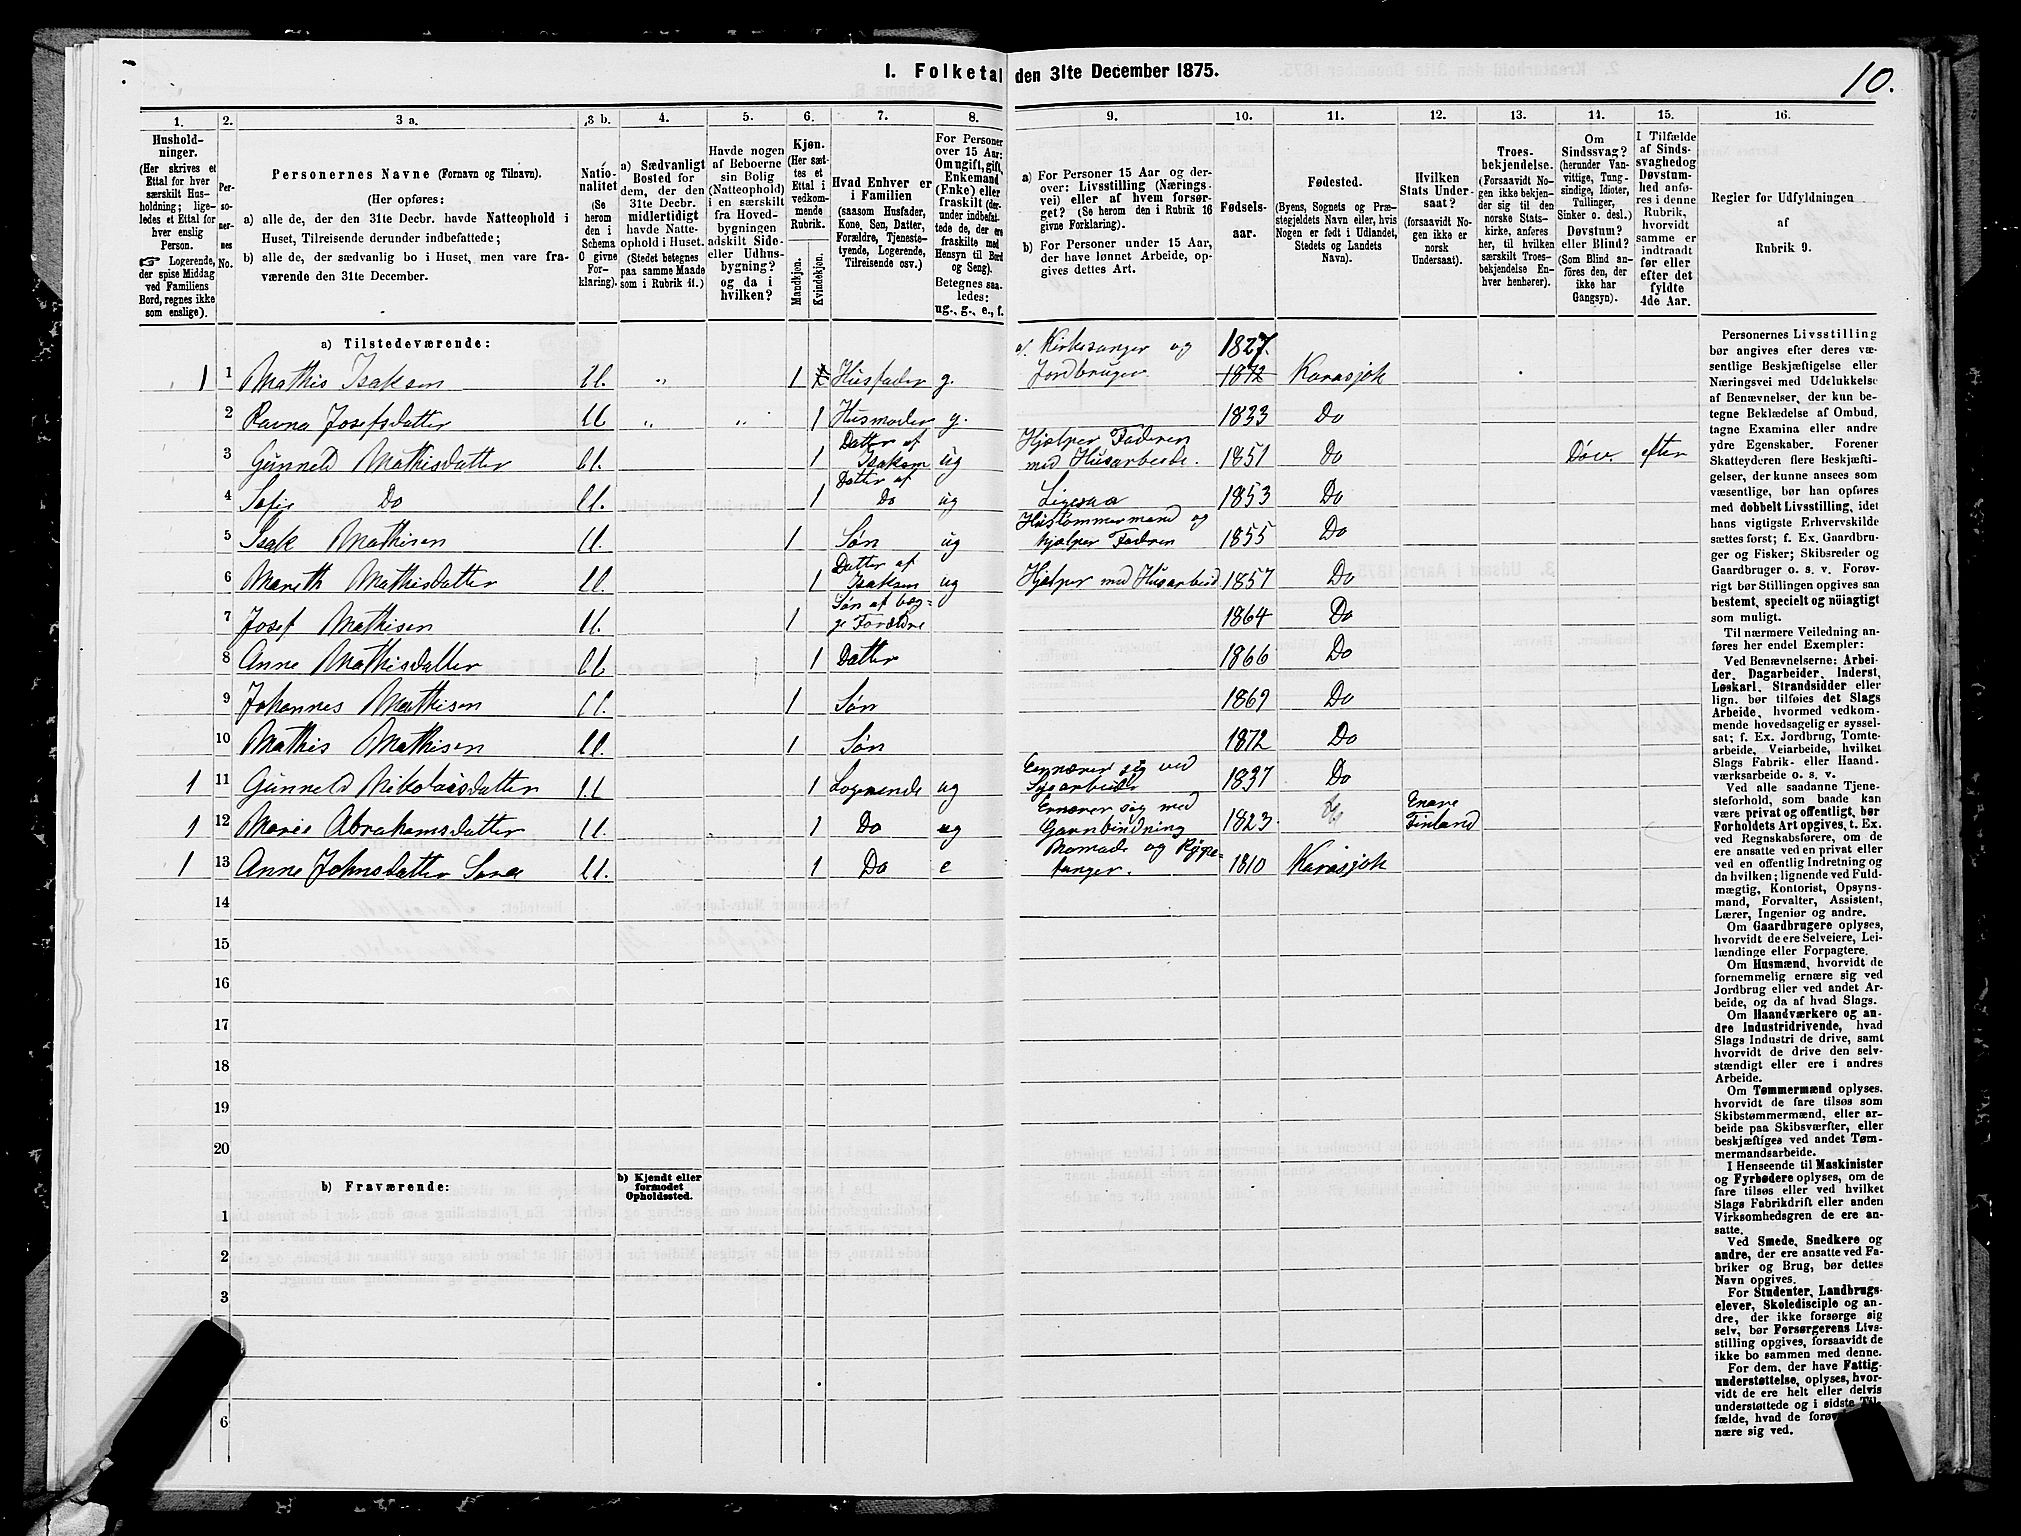 I. Folketal den 31te December 1875.
10.
1.
Hushold-
ninger.
(Her skrives et
Ettal for hver
særskilt Hus-
holdning; lige-
ledes et Ettal for
hver enslig
Person.
☞ Logerende,
der spise Middag
ved Familiens
Bord, regnes ikke
som enslige).
2.
Per-
so-
ner-
nes
No.
3 a.
Personernes Navne (Fornavn og Tilnavn).
(Her opføres:
a) alle de, der den 31te Decbr. havde Natteophold i
Huset, Tilreisende derunder indbefattede;
b) alle de, der sædvanlig bo i Huset, men vare fra-
værende den 31te December.
3 b.
Natio-
nalitet
(Se
herom
den i
Schema
C givne
For-
klaring).
4.
a) Sædvanligt
Bosted for
dem, der den
31te Decbr.
midlertidigt
havde Natte-
ophold i Huset.
(Stedet betegnes
paa samme Maade
som i Rubrik 11.)
5.
Havde nogen
af Beboerne
sin Bolig
(Natteophold)
i en særskilt
fra Hoved-
bygningen
adskilt Side-
eller Udhus-
bygning?
og da i
hvilken?
6.
Kjøn.
(Her sæt-
tes et
Ettal i
vedkom-
mende
Rubrik.
Mandkjøn.
Kvindekjøn.
7.
Hvad Enhver er
i Familien
(saasom Husfader,
Kone, Søn, Datter,
Forældre, Tjeneste-
tyende, Logerende,
Tilreisende osv.)
8.
For Personer
over 15 Aar:
Om ugift, gift,
Enkemand
(Enke) eller
fraskilt (der-
under indbefat-
tede de, der ere
fraskilte med
Hensyn til Bord
og Seng).
Betegnes saa-
ledes:
ug., g., e., f.
9.
a) For Personer 15 Aar og der-
over: Livsstilling (Nærings-
vei) eller af hvem forsør-
get? (Se herom den i Rubrik 16
givne Forklaring).
b) For Personer under 15 Aar,
der have lønnet Arbeide, op-
gives dettes Art.
10.
Fødsels-
aar.
11.
Fødested.
(Byens, Sognets og Præ-
stegjeldets Navn eller, hvis
Nogen er født i Udlandet,
Stedets og Landets
Navn).
12.
Hvilken
Stats Under-
saat?
(forsaavidt No-
gen ikke er
norsk
Undersaat).
13.
Troes-
bekjendelse.
(Forsaavidt No-
gen ikke bekjen-
der sig til den
norske Stats-
kirke, anføres
her, til hvilken
særskilt Troes-
bekjendelse En-
hver henhører).
14.
Om
Sindssvag?
(herunder Van-
vittige, Tung-
sindige, Idioter,
Tullinger,
Sinker o. desl.)
Døvstum?
eller Blind?
(Som Blind an-
føres den, der
ikke har
Gangsyn).
15.
I Tilfælde
af Sinds-
svaghed og
Døvstum-
hed anfø-
res i denne
Rubrik,
hvorvidt
samme er
indtraadt
før eller
efter det
fyldte
4de Aar.
16.
Regler for Udfyldningen
af
Rubrik 9.
a) Tilstedeværende:
1 1 Mathis Isaksen ll. „ 1 Husfader g. a/. Kirkesanger og Jordbruger 1827. 1872 Karasjok
2 Ravna Josefsdatter ll „ „ 1 Husmoder g. 1833 Do
3 Gunneld Mathisdatter ll. 1 Datter af Isaksen ug Hjælper Faderen med Husarbeide. 1851 Do Døv. efter
4 Sofie Do ll. 1 Datter af Do ug Ligesaa 1853 Do
5 Isak Mathisen ll. 1 Søn ug Hustømmermand og hjælper Faderen 1855 Do
6 Mareth Mathisdatter ll. 1 Datter af Isaksen ug Hjælper med Husarbeid 1857 Do
7 Josef Mathisen ll. 1 Søn af beg- ge Forældre 1864 Do
8 Anne Mathisdatter ll 1 Datter 1866 Do
9 Johannes Mathisen ll. 1 Søn 1869 Do
10 Mathis Mathisen ll. 1 Søn 1872 Do
1 11 Gunneld Nikolaisdatter ll 1 Logerende ug Ernærer sig ved Syearbeide 1837 Do
1 12 Marie Abrahamsdatter ll. 1 Do ug Ernærer sig med Garnbindning 1823. Enare Finland
1 13 Anne Johnsdatter Sara ll. 1 Do e Nomade og Rype- fanger. 1810 Karasjok
14
15
16
17
18
19
20
b) Fraværende:
b) Kjendt eller
formodet
Opholdssted.
1
2
3
6
Personernes Livsstilling
bør angives efter deres væ-
sentlige Beskjæftigelse eller
Næringsvei med Udelukkelse
af Benævnelser, der kun be-
tegne Beklædelse af Ombud,
tagne Examina eller andre
ydre Egenskaber. Forener
Skatteyderen flere Beskjæfti-
gelser, der kunne ansees som
væsentlige, bør han opføres
med dobbelt Livsstilling, idet
hans vigtigste Erhvervskilde
sættes først; f. Ex. Gaardbru-
ger og Fisker; Skibsreder og
Gaardbruger o. s. v. Forøv-
rigt bør Stillingen opgives saa
bestemt, specielt og nöiagtigt
som muligt.
Til nærmere Veiledning an-
føres her endel Exempler:
Ved Benævnelserne: Arbei-
der, Dagarbeider, Inderst,
Løskarl, Strandsidder eller
lign. bør tilføies det Slags
Arbeide, hvormed vedkom-
mende hovedsagelig er syssel-
sat; f. Ex. Jordbrug, Tomte-
arbeide, Veiarbeide, hvilket
Slags Fabrik- eller Haand-
værksarbeide o. s. v.
Ved alle saadanne Tjene-
steforhold, som baade kan
være privat og offentligt, bør
Forholdets Art opgives, t. Ex.
ved Regnskabsførere, om de
ere ansatte ved en privat eller
ved en offentlig Indretning og
da hvilken; lignende ved Fuld-
mægtig, Kontorist, Opsyns-
mand, Forvalter, Assistent,
Lærer, Ingeniør og andre.
Om Gaardbrugere oplyses,
hvorvidt de ere Selveiere, Lei-
lændinge eller Forpagtere.
Om Husmænd, hvorvidt de
fornemmelig ernære sig ved
Jordbrug eller ved andet Ar-
beide, og da af hvad Slags.
Om Haandværkere og an-
dre Industridrivende, hvad
Slags Industri de drive, samt
hvorvidt de drive den selv-
stændigt eller ere i andres
Arbeide.
Om Tømmermænd oplyses.
hvorvidt de fare tilsøs som
Skibstømmermænd, eller ar-
beide paa Skibsværfter, eller
beskjæftiges ved andet Tøm-
mermandsarbeide.
I Henseende til Maskinister
og Fyrbødere oplyses, om de
fare tilsøs eller ved hvilket
Slags Fabrikdrift eller anden
Virksomhedsgren de ere an-
satte.
Ved Smede, Snedkere og
andre, der ere ansatte ved Fa-
briker og Brug, bør dettes
Navn opgives.
For Studenter, Landbrugs-
elever, Skoledisciple og an-
dre, der ikke forsørge sig
selv, bør Forsørgerens Livs-
stilling opgives, forsaavidt de
ikke bo sammen med denne.
For dem, der have Fattig-
understøttelse, oplyses, hvor-
vidt de ere helt eller delvis
understøttede og i sidste Til-
fælde, hvad de
nære sig ved.